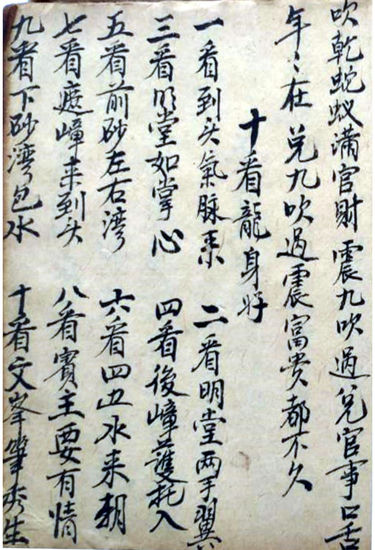 吹乾蛇蚁满官财震九吹過兑官事口舌
年々在兑九吹過震富贵都不久
十看龍身好
一看到头氣脉来 二看明堂两手翼
三看明堂如掌心 四看後嶂護托入
五看前砂左右湾 六看四丑水来朝
七看遮嶂来到头 八看賓主要有情
九看下砂湾包水 十看文峯筆秀生